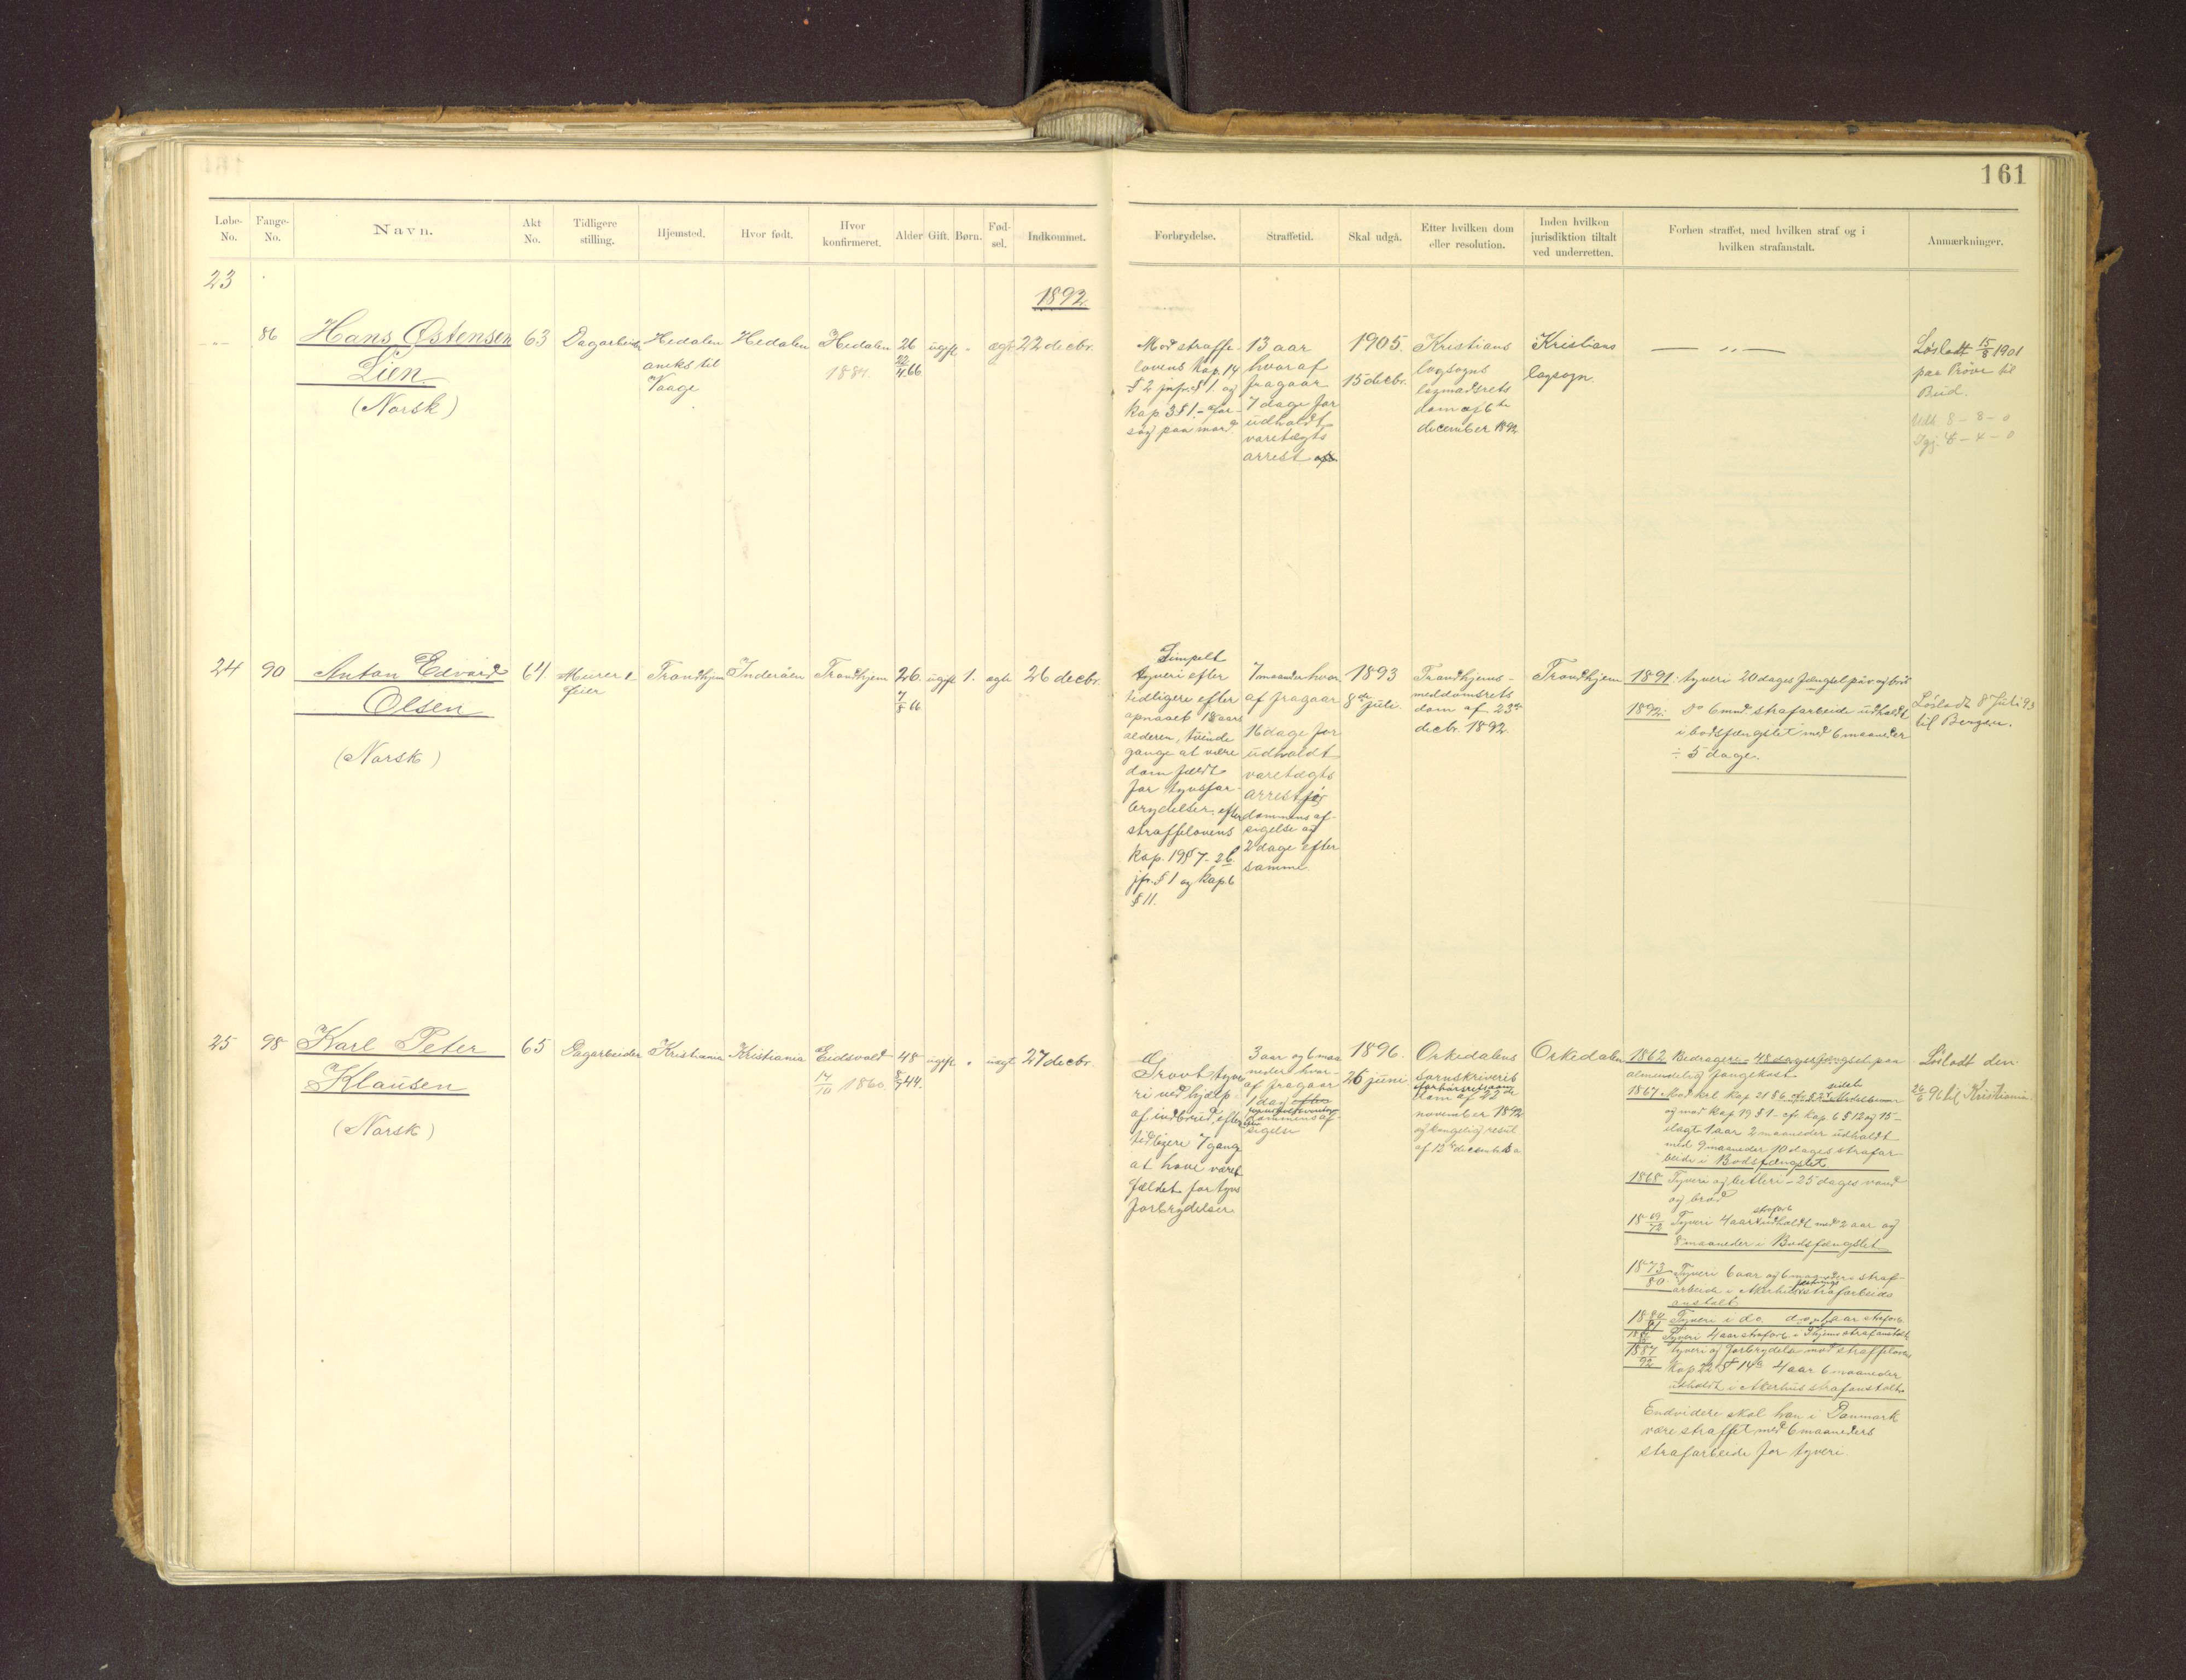 161
Løbe-No.
Fange-No.
Navn.
Akt No.
Tidligere stilling.
Hjemsted.
Hvor født.
Hvor konfirmeret.
Alder
Gift.
Børn.
Fød-sel.
Indkommet.
Forbrydelse.
Straffetid.
Skal udgå.
Efter hvilken dom eller resolution.
Inden hvilken jurisdiktion tiltalt ved underretten.
Forhen straffet, med hvilken straf og i hvilken strafanstalt.
Anmærkninger.
1892.
23
86
Hans Østensen
Lien
(Norsk)
63
Dagarbeider
Hedalen
aneks til
Vaage
Hedalen
Hedalen
1884.
26
22/4 66
ugift
"
ægte
22 decbr.
Mod straffe-
lovens kap. 14
§ 2 jnfr. § 1 og
kap 3 § 1. - For-
søg paa mord
13 aar
hvoraf
fragaar
7 dage for
udholdt
varetægts
arrest
1905.
15 decbr.
Kristians
lagsogns
lagmadsrets
dom af 6te
december 1892
Kristians
lagsogn.
— " —
Løsladt 15/8 1901
paa Prøve til
Bud.
Udh. 8 - 8 - 0
Igj. 4 - 4 - 0
24
90
Anton Edvard
Olsen
(Norsk)
64
Murer &
feier
Trondhjem
Inderøen
Trondhjem
26.
7/8 66
ugift
1.
ægte
26 decbr.
Simpelt
tyveri efter
tidligere efter
opnaaet 18 aars
alderen, tvende
gange at være
domfældt
for tyvsfor-
brydelser, efter
straffelovens
kap. 19 § 7 - 2 b.
jfr. § 1 og kap. 6
§ 11.
7 maaneder hvor
af fragaar
16 dage for
udholdt
varetægts
arrest før
dommens af-
sigelse og
2 dage efter
samme.
1893
8de juli.
Trondhjems-
meddomsrets
dom af 23de
decbr. 1892.
Trondhjem
1891: tyveri 20 dages fængsel på v og brød
1892: Do 6 mnd. strafarbeide udholdt
i bodsfængslet med 6 maaneder
÷ 5 dage.
Løsladt 8 Juli 93
til Bergen.
25
98
Karl Peter
Klausen
(Norsk)
65
Dagarbeider
Kristiania
Kristiania
Eidsvold
14/10 1860.
48
8/7 44.
ugift
"
uægt
27 decbr.
Grovt tyve
ri ved hjælp
af indbrud, efter
tidligere 7 gang
at have været
fældet for tyvs
forbrydelser
3 aar og 6 maa
neder hvor-
af fragaar
1 dag efter
dommens af-
sigelse
1896.
26 juni
Orkedalens
sorenskriveris
forhørsrets
dom af 22de
november 1892
og kongelig resol
af 13de december s a
Orkedalen
1862 Bedrageri - 48 dages fængsel paa
almindelig fangekost
1867 Mod krl kap 21 § 6
og mod kap 19 § 1 - cfr. kap 6 § 12 og 15 -
ilagt 1 aar 2 maaneder udholdt
med 9 maaneder 10 dages strafar
beide i Bodsfængslet
1868 Tyveri og betleri - 25 dages vand
og brød
18 69/72 Tyveri 4 aars strafarb udholdt med 2 aar og
8 maaneder i Bodsfængslet
18 73/80 Tyveri 6 aar og 6 maaneders straf-
arbeide i Akerhus fæstnings strafarbeids
anstalt
18 80/81 Tyveri i do. aar strafarb.
Tyveri 4 aar strafarb. i Thjems strafanstalt
18 87/92 tyveri og forbrydelse mod straffeloven
kap 22 § 14 4 aar 6 maaneder
udholdt i Akerhus strafanstalt.
Endvidere skal han i Danmark
være straffet med 6 maaneders
strafarbeide for tyveri.
Løsladt den
26/6 96 til Kristiania